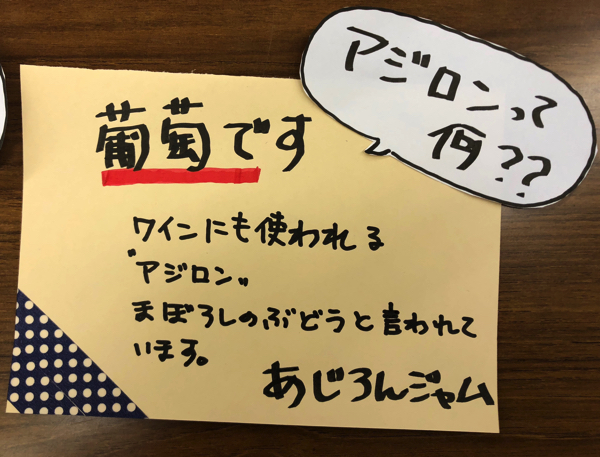 アジロンって
何??
葡萄です
ワインにも使われる
"アジロン"
まぼろしのぶどうと言われて
います。
あじろんジャム